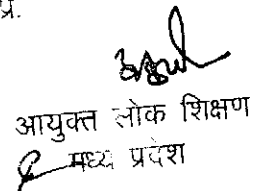 प्र.
आयुक्त लोक शिक्षण
मध्य प्रदेश